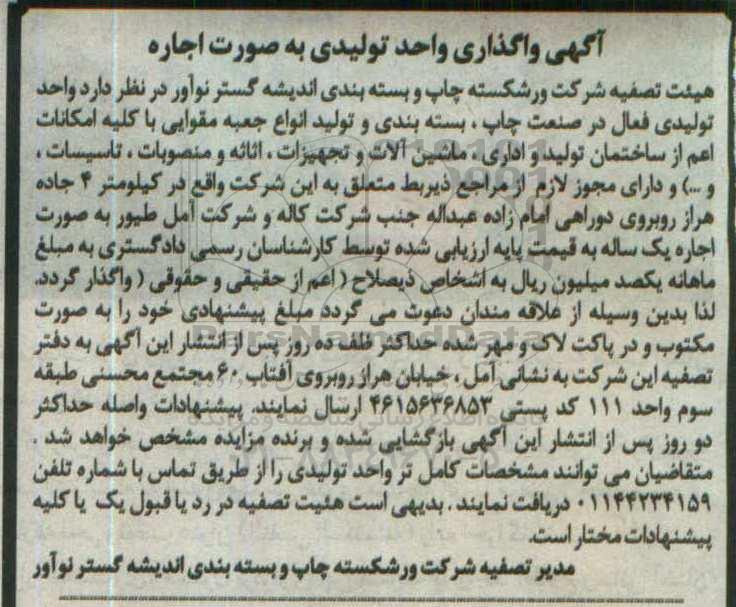 آگهی واگذاری واحد تولیدی به صورت اجاره
هیئت تصفیه شرکت ورشکسته چاپ و بسته بندی اندیشه گستر نوآور در نظر دارد واحد
تولیدی فعال در صنعت چاپ ، بسته بندی و تولید انواع جعبه مقوایی با کلیه امکانات
اعم از ساختمان تولید و اداری ، ماشین آلات و تجهیزات ، اثاثه و منصوبات ، تاسیسات ،
و ...) و دارای مجوز لازم از مراجع ذیربط متعلق به این شرکت واقع در کیلومتر ۴ جاده
هراز روبروی دوراهی امام زاده عبداله جنب شرکت کاله و شرکت آمل طیور به صورت
اجاره یک ساله به قیمت پایه ارزیابی شده توسط کارشناسان رسمی دادگستری به مبلغ
ماهانه یکصد میلیون ریال به اشخاص ذیصلاح ( اعم از حقیقی و حقوقی ) واگذار گردد.
لذا بدین وسیله از علاقه مندان دعوت می گردد مبلغ پیشنهادی خود را به صورت
مکتوب و در پاکت لاک و مهر شده حداکثر ظلف ده روز پس از انتشار این آگهی به دفتر
تصفیه این شرکت به نشانی آمل ، خیابان هراز روبروی آفتاب ۶۰ مجتمع محسنی طبقه
سوم واحد ۱۱۱ کد پستی ۴۶۱۵۶۳۶۸۵۳ ارسال نمایند. پیشنهادات واصله حداکثر
دو روز پس از انتشار این آگهی بازگشایی شده و برنده مزایده مشخص خواهد شد .
متقاضیان می توانند مشخصات کامل تر واحد تولیدی را از طریق تماس با شماره تلفن
۰۱۱۴۴۲۳۴۱۵۹ دریافت نمایند . بدیهی است هئیت تصفیه در رد یا قبول یک یا کلیه
پیشنهادات مختار است.
مدیر تصفیه شرکت ورشکسته چاپ و بسته بندی اندیشه گستر نوآور
ParsNamadData